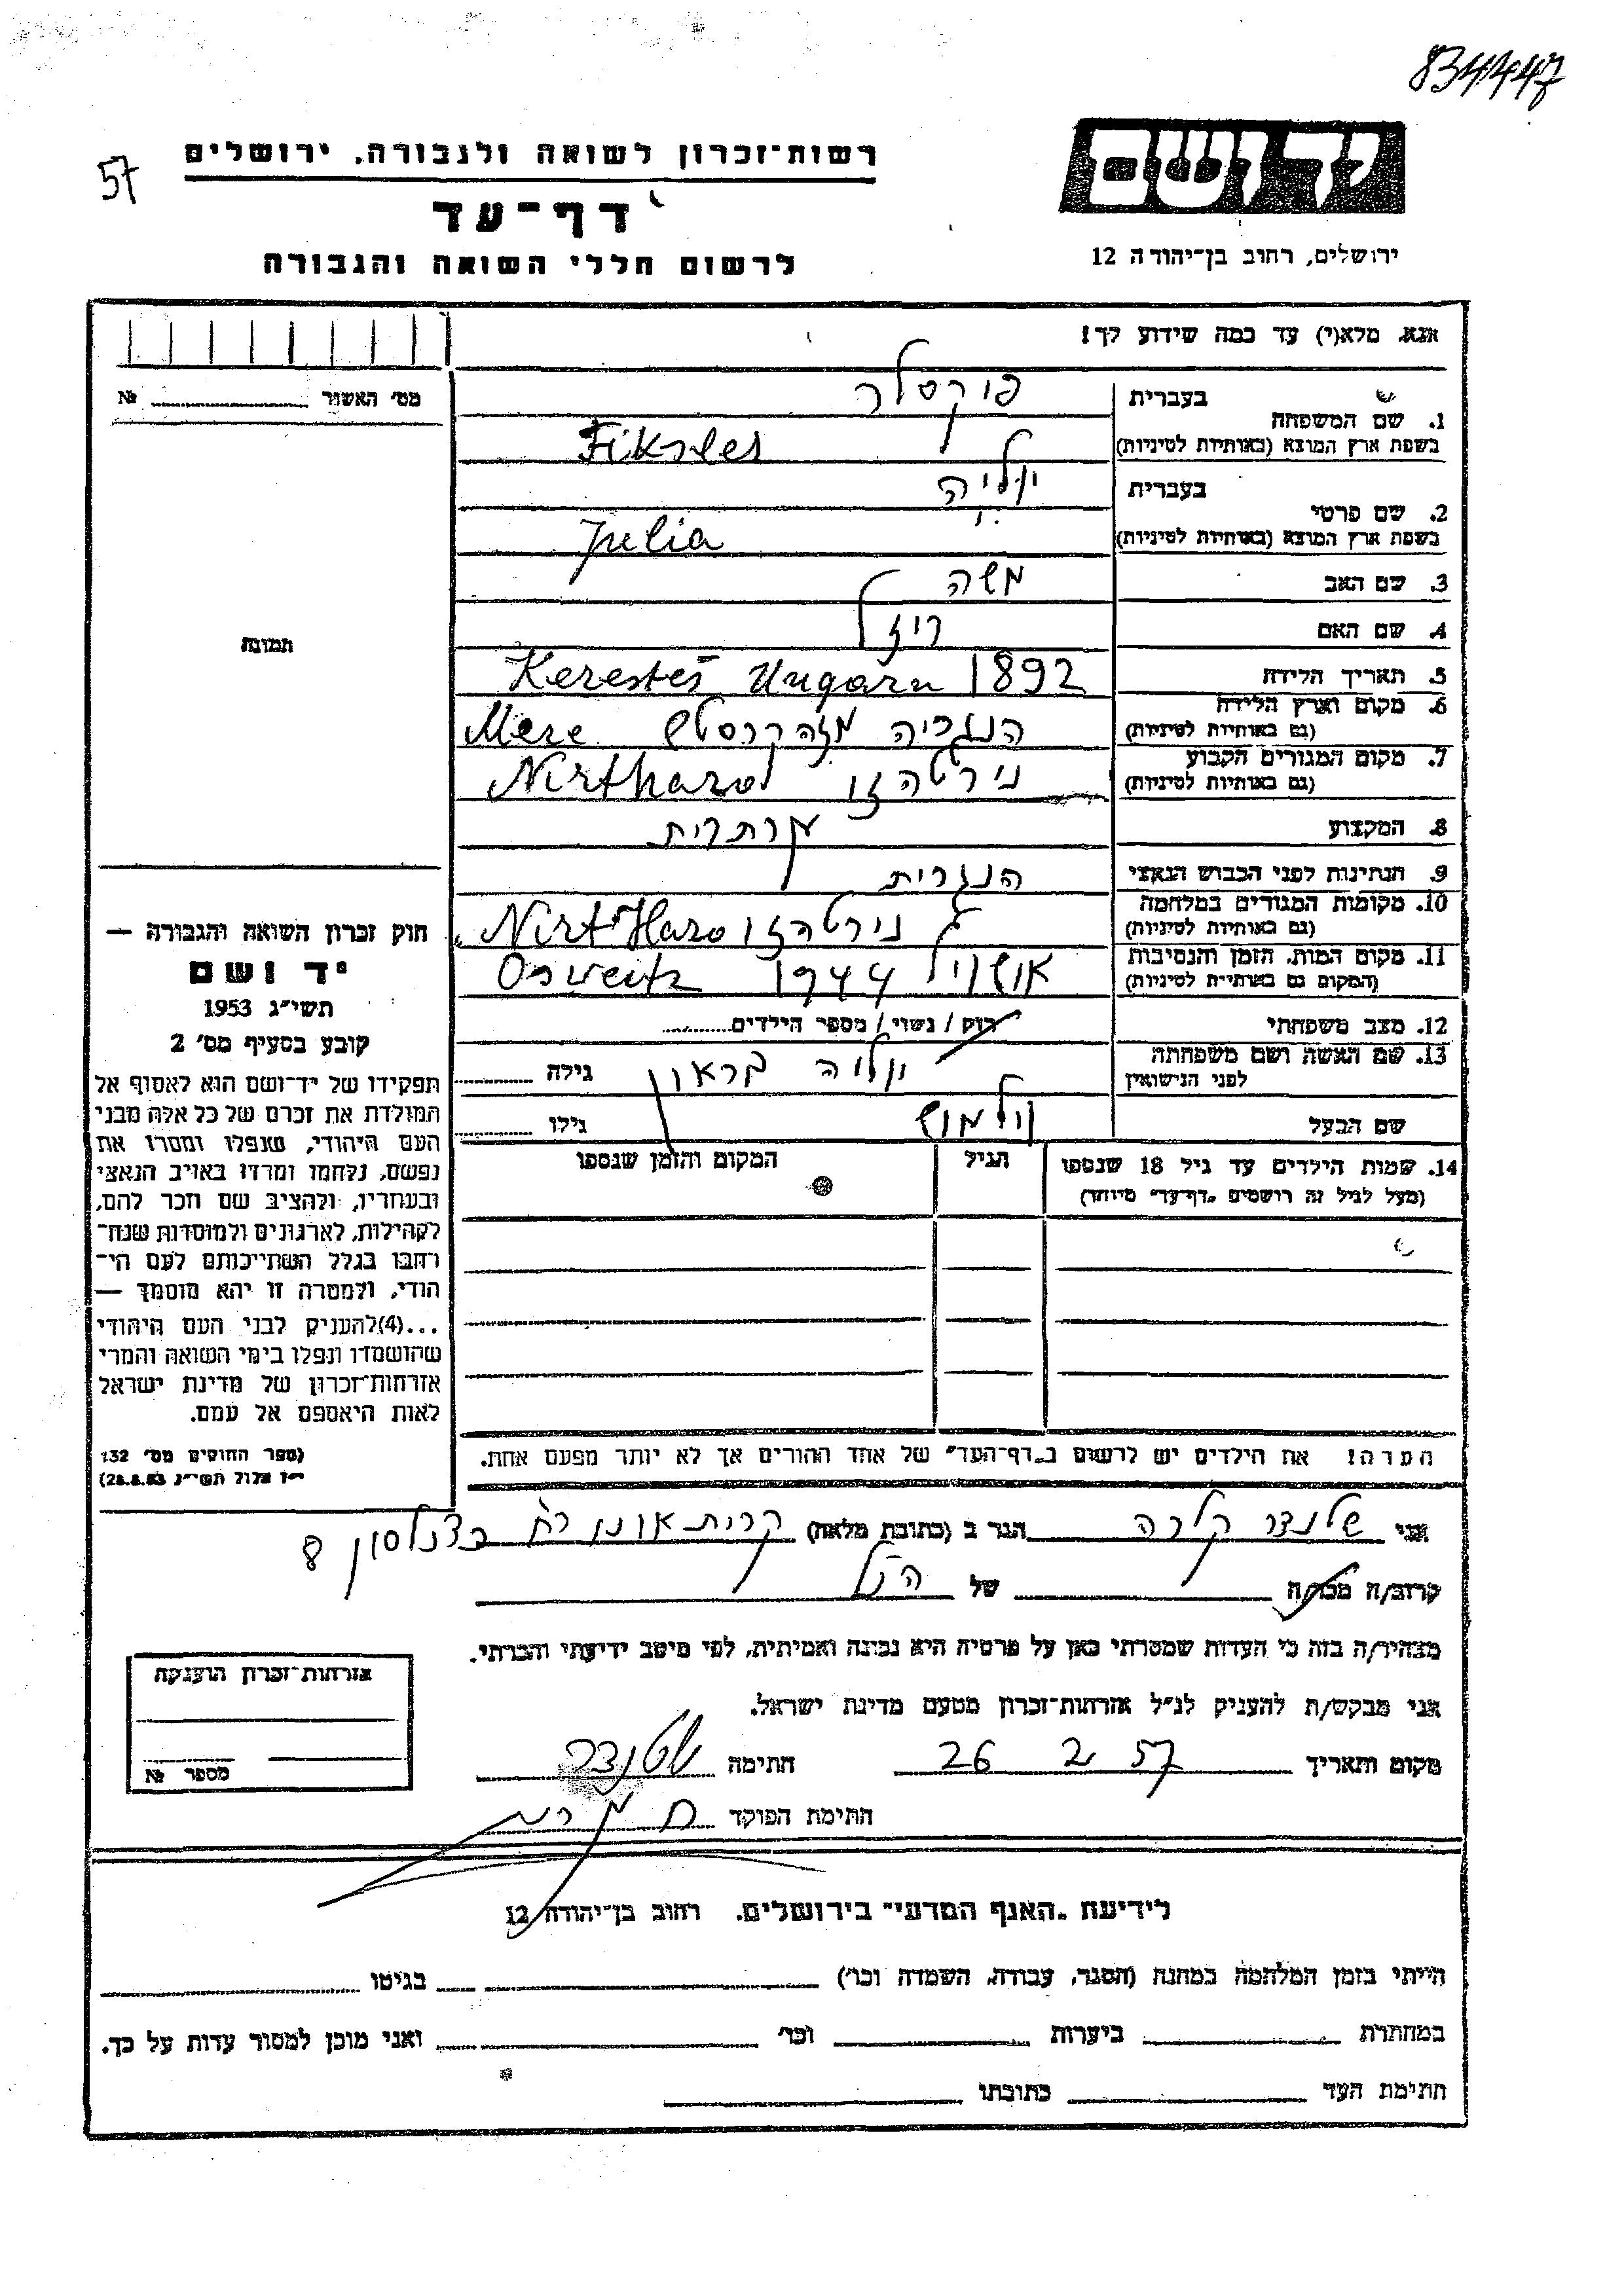 834447
57
יד ושם
רשות-זכרון לשואה ולגבורה, ירושלים
דף-עד
ירושלים, רחוב בן-יהודה 12
לרשום חללי השואה והגבורה
אנא, מלא(י) עד כמה שידוע לך!
מס' האשור № 
1. שם המשפחה
בעברית פוקסלר
בשפת ארץ המוצא (באותיות לטיניות)
2. שם פרטי
בעברית יוליה
בשפת ארץ המוצא (באותיות לטיניות) Julia
3. שם האב משה
4. שם האם
תמונה
5. תאריך הלידה Kerestes Ungarn 1892
6. מקום וארץ הלידה
(גם באותיות לטיניות) Meze
7. מקום המגורים הקבוע
(גם באותיות לטיניות)
8. המקצוע
9. הנתינות לפני הכבוש הנאצי הנגרית
10. מקומות המגורים במלחמה
(גם באותיות לטיניות)
11. מקום המות, הזמן והנסיבות
(המקום גם באותיות לטיניות) 1944
12. מצב משפחתי רווק / נשוי / מספר הילדים
13. שם האשה ושם משפחתה
לפני הנישואין יוליה בראון גילה
שם הבעל וילמוש גילו
14. שמות הילדים עד גיל 18 שנספו
(מעל לגיל זה רושמים "דף-עד" מיוחד)
הגיל
המקום והזמן שנספו
הערה: את הילדים יש לרשום ב"דף-העד" של אחד ההורים אך לא יותר מפעם אחת.
חוק זכרון השואה והגבורה —
יד ושם
תשי"ג 1953
קובע בסעיף מס' 2
תפקידו של יד-ושם הוא לאסוף אל
המולדת את זכרם של כל אלה מבני
העם היהודי, שנפלו ומסרו את
נפשם, נלחמו ומרדו באויב הנאצי
ובעוזריו, ולהציב שם וזכר להם,
לקהילות, לארגונים ולמוסדות שנח-
רבו בגלל השתייכותם לעם הי-
הודי, ולמטרה זו יהא מוסמך —
...(4)להעניק לבני העם היהודי
שהושמדו ונפלו בימי השואה והמרי
אזרחות-זכרון של מדינת ישראל
לאות היאספם אל עמם.
(ספר החוקים מס' 132
י"ז אלול תשי"ג 28.8.53)
אני שלנצר קלרה הגר ב (כתובת מלאה) קרית אונו רח' כצנלסון 8
קרוב/ה מכר/ה של הנ"ל
מצהיר/ה בזה כי העדות שמסרתי כאן על פרטיה היא נכונה ואמיתית, לפי מיטב ידיעתי והכרתי.
אני מבקש/ת להעניק לנ"ל אזרחות-זכרון מטעם מדינת ישראל.
מקום ותאריך 26 2 57 חתימה
חתימת הפוקד
אזרחות-זכרון הוענקה
מספר №
לידיעת "האגף המדעי" בירושלים, רחוב בן-יהודה 12
הייתי בזמן המלחמה במחנה (הסגר, עבודה, השמדה וכו') בגיטו
במחתרת ביערות וכו' ואני מוכן למסור עדות על כך.
חתימת העד כתובתו